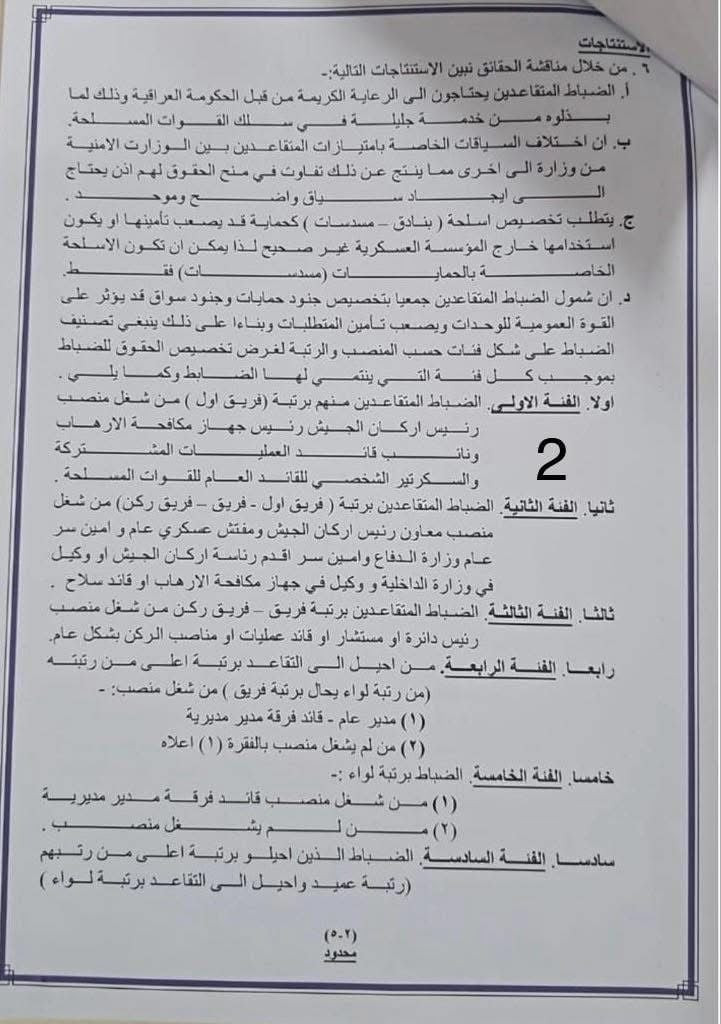 الاستنتاجات
٦ . من خلال مناقشة الحقائق نبين الاستنتاجات التالية:-
أ. الضباط المتقاعدين يحتاجون الى الرعاية الكريمة من قبل الحكومة العراقية وذلك لما
بذلوه من خدمة جليلة في سلك القوات المسلحة.
ب. ان اختلاف السياقات الخاصة بامتيازات المتقاعدين بين الوزارت الامنية
من وزارة الى اخرى مما ينتج عن ذلك تفاوت في منح الحقوق لهم اذن يحتاج
الى ايجاد سياق واضح وموحد .
ج. يتطلب تخصيص اسلحة ( بنادق – مسدسات ) كحماية قد يصعب تأمينها او يكون
استخدامها خارج المؤسسة العسكرية غير صحيح لذا يمكن ان تكون الاسلحة
الخاصة بالحمايات (مسدسات) فقط.
د. ان شمول الضباط المتقاعدين جمعيا بتخصيص جنود حمايات وجنود سواق قد يؤثر على
القوة العمومية للوحدات ويصعب تأمين المتطلبات وبناءا على ذلك ينبغي تصنيف
الضباط على شكل فئات حسب المنصب والرتبة لغرض تخصيص الحقوق للضباط
بموجب كل فئة التي ينتمي لها الضابط وكما يلي .
اولا. الفئة الاولى. الضباط المتقاعدين منهم برتبة (فريق اول ) من شغل منصب
رئيس اركان الجيش رئيس جهاز مكافحة الارهاب
ونائب قائد العمليات المشتركة
والسكرتير الشخصي للقائد العام للقوات المسلحة .
2
ثانيا. الفئة الثانية. الضباط المتقاعدين برتبة ( فريق اول - فريق – فريق ركن) من شغل
منصب معاون رئيس اركان الجيش ومفتش عسكري عام و امين سر
عام وزارة الدفاع وامين سر اقدم رئاسة اركان الجيش او وكيل
في وزارة الداخلية و وكيل في جهاز مكافحة الارهاب او قائد سلاح .
ثالثا. الفئة الثالثة. الضباط المتقاعدين برتبة فريق – فريق ركن من شغل منصب
رئيس دائرة او مستشار او قائد عمليات او مناصب الركن بشكل عام.
رابعا. الفئة الرابعة. من احيل الى التقاعد برتبة اعلى من رتبته
(من رتبة لواء يحال برتبة فريق ) من شغل منصب: -
(١) مدير عام - قائد فرقة مدير مديرية
(٢) من لم يشغل منصب بالفقرة (١) اعلاه
خامسا. الفئة الخامسة. الضباط برتبة لواء :-
(١) من شغل منصب قائد فرقة مدير مديرية
(٢) من لم يشغل منصب .
سادسا. الفئة السادسة. الضباط الذين احيلو برتبة اعلى من رتبهم
(رتبة عميد واحيل الى التقاعد برتبة لواء )
(٢-٥)
محدود